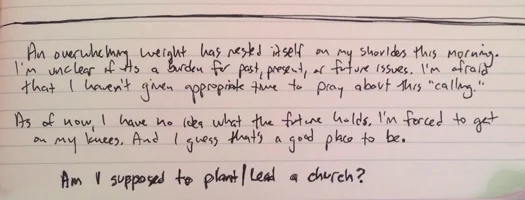 An overwhelming weight has nested itself on my shoulders this morning.
I'm unclear if its a burden for past, present, or future issues. I'm afraid
that I haven't given appropriate time to pray about this "calling."
As of now, I have no idea what the future holds. I'm forced to get
on my knees. And I guess that's a good place to be.
Am I supposed to plant/lead a church?